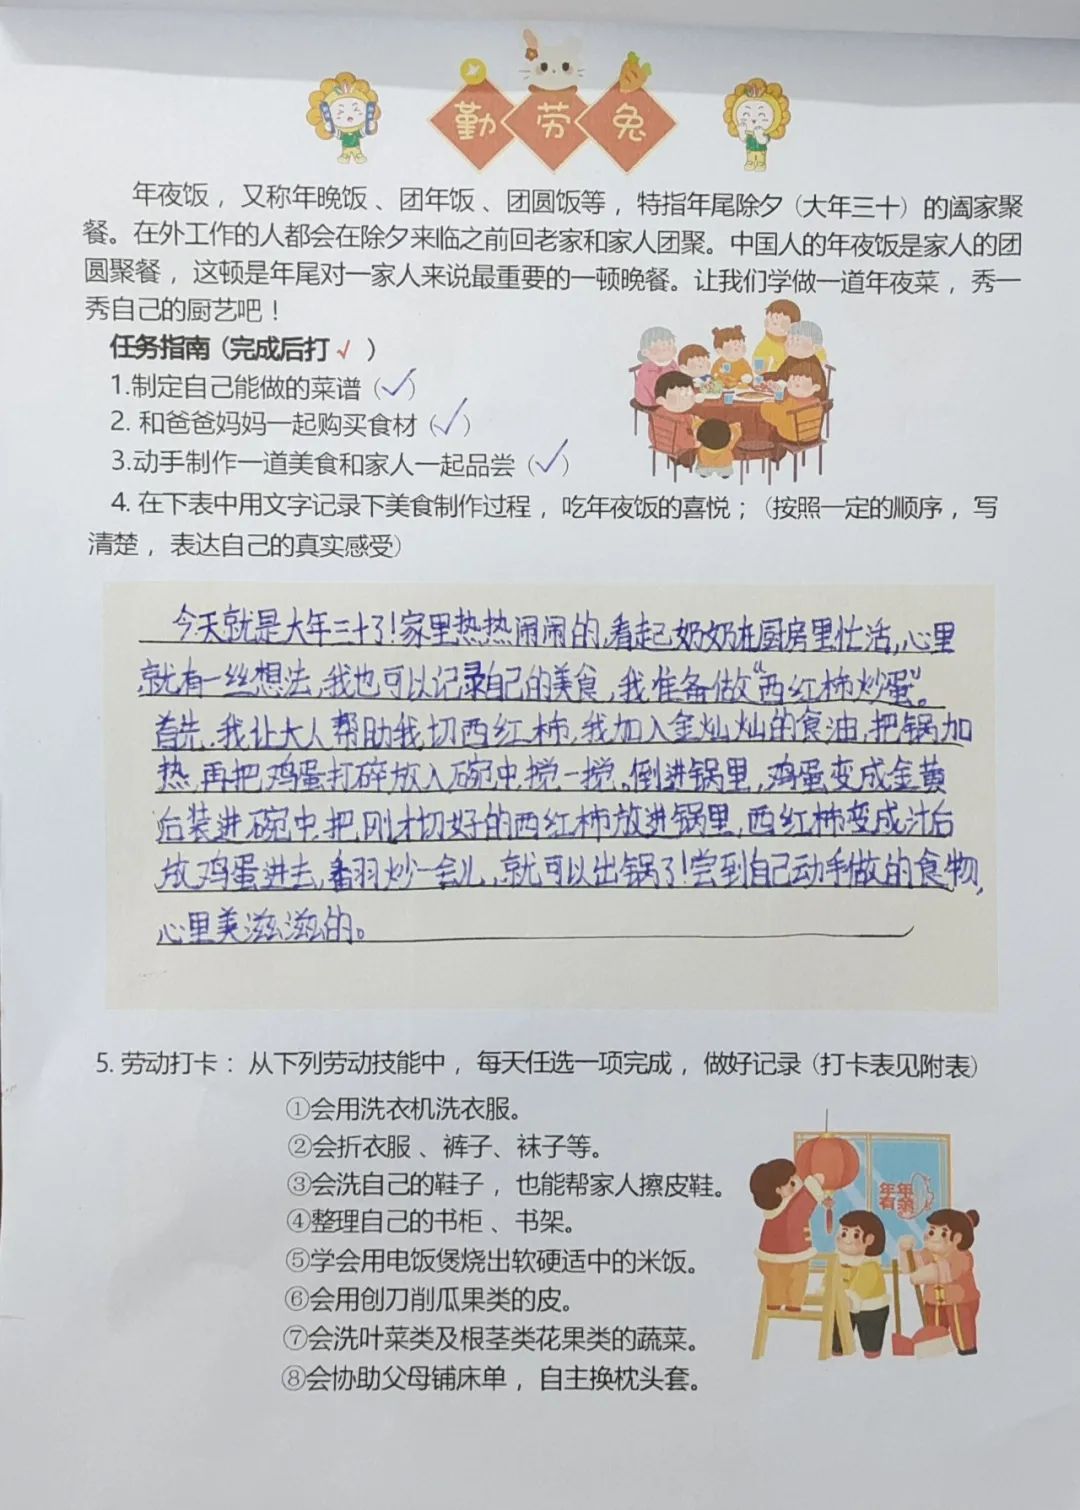 勤劳兔
年夜饭，又称年晚饭、团年饭、团圆饭等，特指年尾除夕(大年三十)的阖家聚
餐。在外工作的人都会在除夕来临之前回老家和家人团聚。中国人的年夜饭是家人的团
圆聚餐，这顿是年尾对一家人来说最重要的一顿晚餐。让我们学做一道年夜菜，秀一
秀自己的厨艺吧！
任务指南(完成后打√ )
1.制定自己能做的菜谱(✓)
2. 和爸爸妈妈一起购买食材(✓)
3.动手制作一道美食和家人一起品尝(✓)
4. 在下表中用文字记录下美食制作过程，吃年夜饭的喜悦；(按照一定的顺序，写
清楚，表达自己的真实感受)
今天就是大年三十了!家里热热闹闹的,看起奶奶在厨房里忙活,心里
就有一丝想法,我也可以记录自己的美食,我准备做“西红柿炒蛋”。
首先,我让大人帮助我,切西红柿,我加入金灿灿的食油,把锅加
热,再把鸡蛋打碎放入碗中,搅一搅。倒进锅里,鸡蛋变成金黄
后装进碗中,把刚才切好的西红柿放进锅里,西红柿变成汁后
放鸡蛋进去,翻炒一会儿,就可以出锅了!尝到自己动手做的食物,
心里美滋滋的。
5. 劳动打卡：从下列劳动技能中，每天任选一项完成，做好记录(打卡表见附表)
①会用洗衣机洗衣服。
②会折衣服、裤子、袜子等。
③会洗自己的鞋子，也能帮家人擦皮鞋。
④整理自己的书柜、书架。
⑤学会用电饭煲烧出软硬适中的米饭。
⑥会用刨刀削瓜果类的皮。
⑦会洗叶菜类及根茎类花果类的蔬菜。
⑧会协助父母铺床单，自主换枕头套。
年年
有余